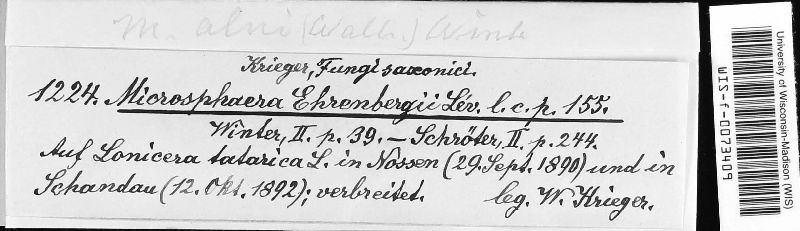 M. alni (Wallr.) Wint
Krieger, Fungi saxonici.
1224. Microsphaera Ehrenbergii Lév. l. c. p. 155.
Winter, II. p. 39. – Schröter, II. p. 244.
Auf Lonicera tatarica L. in Nossen (29. Sept. 1890) und in
Schandau (12. Okt. 1892); verbreitet. leg. W. Krieger.
University of Wisconsin-Madison (WIS)
WIS-f-0073409